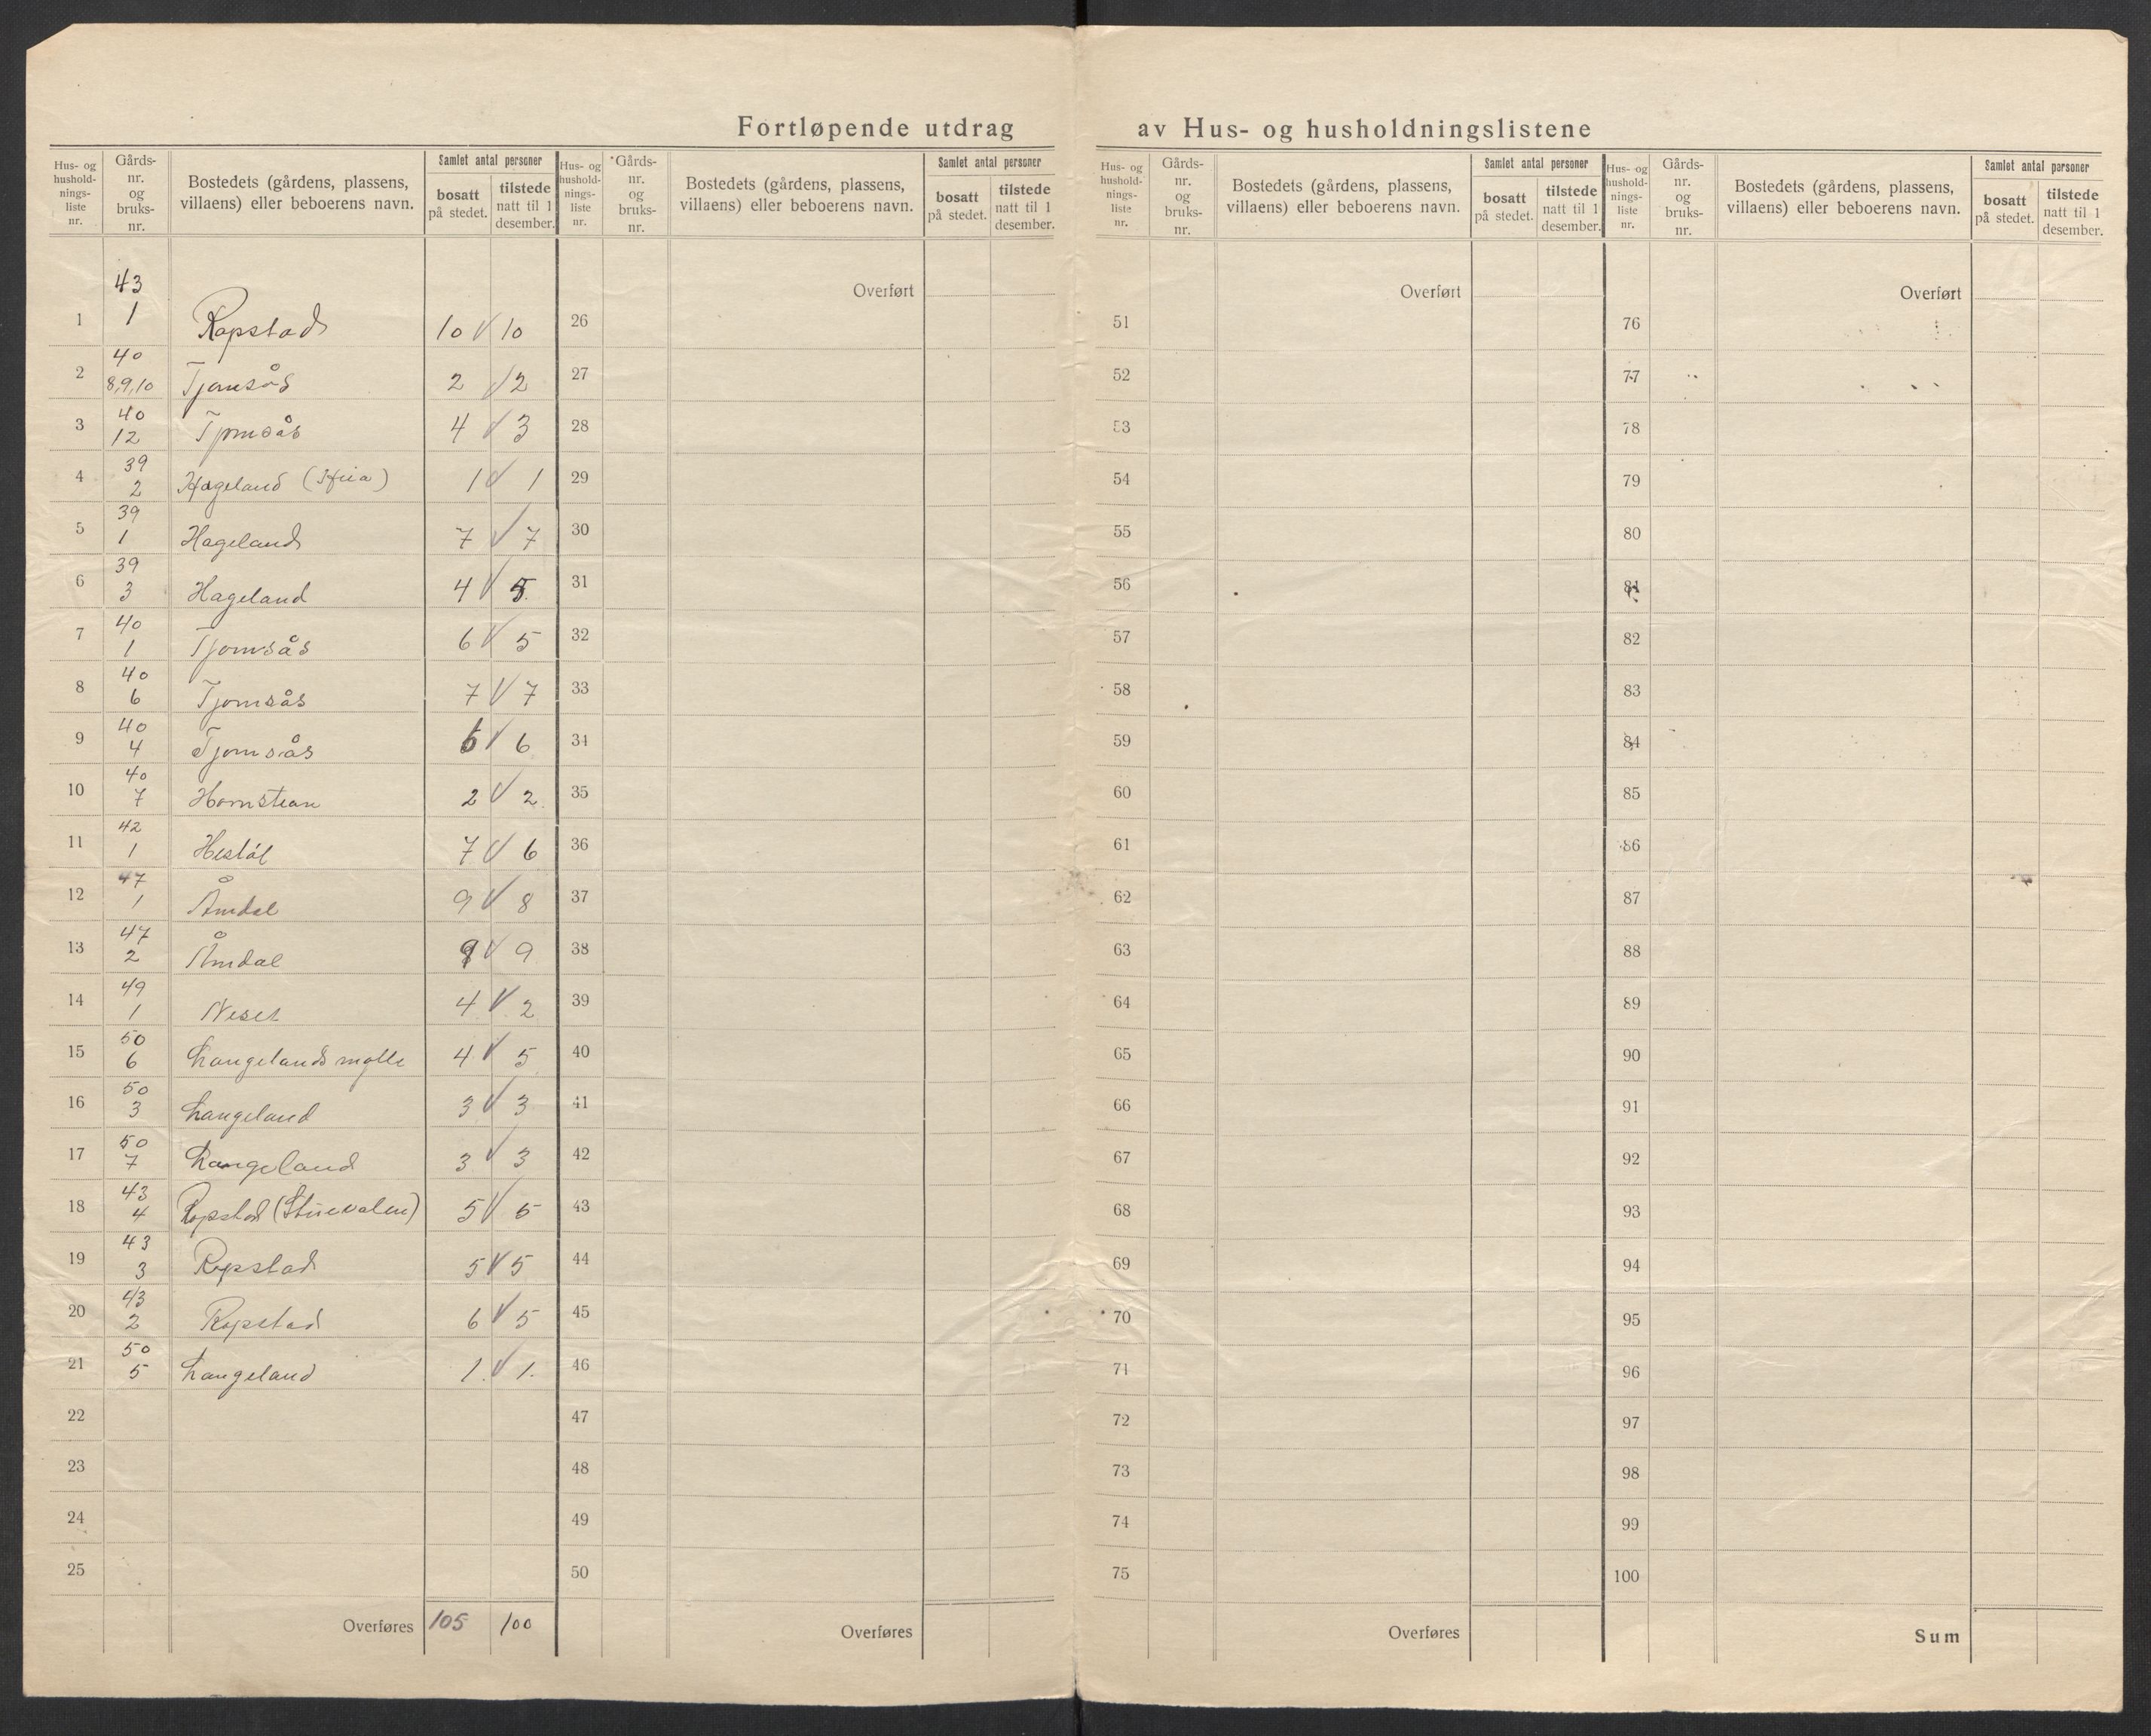 Fortløpende utdrag av Hus- og husholdningslistene
Hus- og husholdnings-liste nr. | Gårds-nr. og bruks-nr. | Bostedets (gårdens, plassens, villaens) eller beboerens navn. | Samlet antal personer | bosatt på stedet. | tilstede natt til 1 desember.
1 | 43 1 | Ropstad | 10 | 10
2 | 40 8,9,10 | Tjomsås | 2 | 2
3 | 40 12 | Tjomsås | 4 | 3
4 | 39 2 | Hageland | 1 | 1
5 | 39 1 | Hageland | 7 | 7
6 | 39 3 | Hageland | 4 | 5
7 | 40 1 | Tjomsås | 6 | 5
8 | 40 6 | Tjomsås | 7 | 7
9 | 40 4 | Tjomsås | 6 | 6
10 | 40 7 | Homstean | 2 | 2
11 | 42 1 | Hestål | 7 | 6
12 | 47 1 | Åmdal | 9 | 8
13 | 47 2 | Åmdal | 9 | 9
14 | 49 1 | Neset | 4 | 2
15 | 50 6 | Langelandsmølle | 4 | 5
16 | 50 3 | Langeland | 3 | 3
17 | 50 7 | Langeland | 3 | 3
18 | 43 4 | Ropstad | 5 | 5
19 | 43 3 | Ropstad | 5 | 5
20 | 43 2 | Ropstad | 6 | 5
21 | 50 5 | Langeland | 1 | 1
22
23
24
25
Overføres | 105 | 100
Hus- og husholdnings-liste nr. | Gårds-nr. og bruks-nr. | Bostedets (gårdens, plassens, villaens) eller beboerens navn. | Samlet antal personer | bosatt på stedet. | tilstede natt til 1 desember.
Overført
26
27
28
29
30
31
32
33
34
35
36
37
38
39
40
41
42
43
44
45
46
47
48
49
50
Overføres
Hus- og husholdnings-liste nr. | Gårds-nr. og bruks-nr. | Bostedets (gårdens, plassens, villaens) eller beboerens navn. | Samlet antal personer | bosatt på stedet. | tilstede natt til 1 desember.
Overført
51
52
53
54
55
56
57
58
59
60
61
62
63
64
65
66
67
68
69
70
71
72
73
74
75
Overføres
Hus- og husholdnings-liste nr. | Gårds-nr. og bruks-nr. | Bostedets (gårdens, plassens, villaens) eller beboerens navn. | Samlet antal personer | bosatt på stedet. | tilstede natt til 1 desember.
Overført
76
77
78
79
80
81
82
83
84
85
86
87
88
89
90
91
92
93
94
95
96
97
98
99
100
Sum